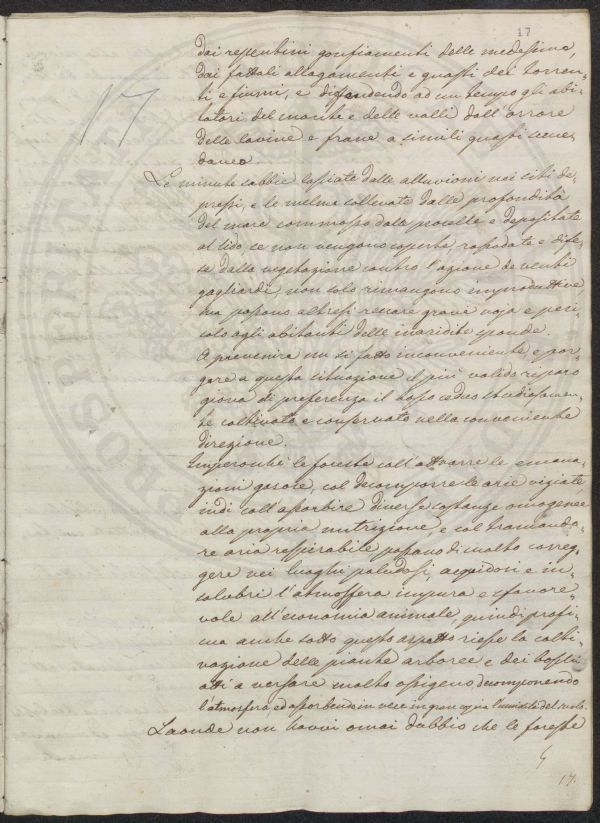 17
N 7
dai repentini gonfiamenti delle medesime,
dai fattali allagamenti e guasti dei torren-
ti e fiumi, e diffendendo ad un tempo gli abi-
tatori del monte e delle valli dall'orrore
delle lavine e frane a simili guasti
Le minute sabbie lasciate dalle alluvioni nei siti de-
pressi, e le melma sollevate dalle profondità
del mare commosso dalle procelle e depositate
al lido, se non vengono coperte, rassodate e dife-
se dalla vegetazione contro l'azione de' venti
gagliardi non solo rimangono improduttive
ma possono altresì recare gravi noja e peri-
colo agli abitanti delle inaridite sponde.
A prevenire un sì fatto inconveniente e por-
gere a questa situazione il più valido riparo
giova di preferenza il bosco ceduo studiosamen-
te coltivato e conservato nella conveniente
direzione.
Imperocchè le foreste coll'attrarre le emana-
zioni gasose, col decomporre le arie viziate,
indi coll'assorbire diverse sostanze omogenee
alla propria nutrizione, e col tramanda-
re aria respirabile, possono di molto correg-
gere nei luoghi paludosi, acquidosi e in-
salubri l'atmosfera impura e sfavore-
vole all'economia animale, quindi profi-
cua anche sotto questo aspetto riesce la colti-
vazione delle piante arboree e dei boschi
atti a versare molto ossigeno, decomponendo
l'atmosfera, ed assorbendo in vece in gran copia l'umidità del suolo.
Laonde non havvi omai dubbio che le foreste
17.